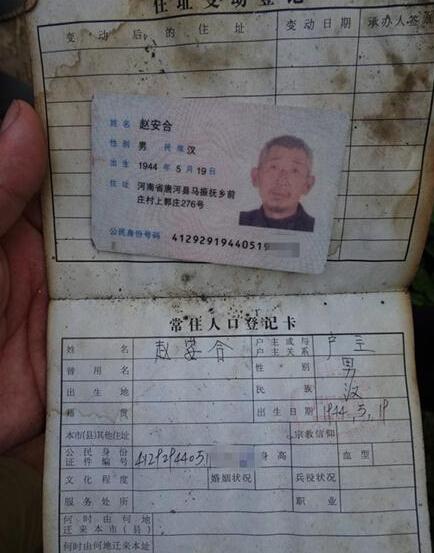 住址变动登记
变动后的住址 变动日期 承办人签
姓名 赵安合
性别 男 民族 汉
出生 1944 年 5 月 19 日
住址 河南省唐河县马振抚乡前
庄村上郭庄276号
公民身份号码 41292919440519
常住人口登记卡
姓名 赵安合 户主或与户主关系 户主
曾用名 性别 男
出生地 民族 汉
籍贯 出生日期 1944.5.19
本市(县)其他住址 宗教信仰
公民身份证件编号 身高 血型
文化程度 婚姻状况 兵役状况
服务处所 职业
何时由何地迁来本市(县)
何时由何地迁来本址